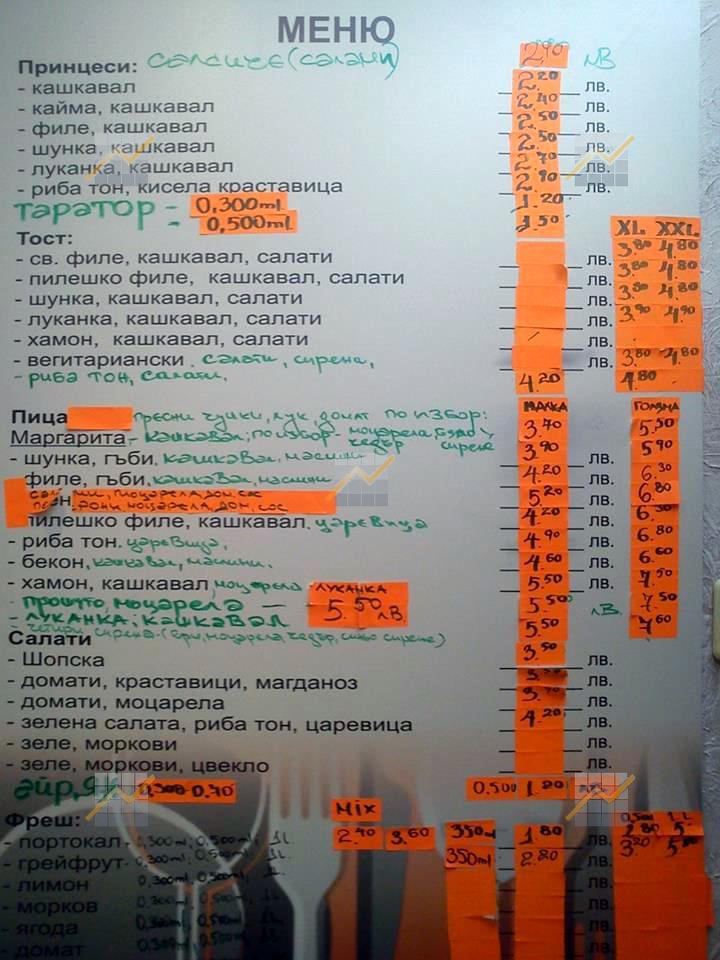 МЕНЮ
Принцеси: САЛСИЧЕ (САЛАМИ) 2,90 ЛВ
- кашкавал 2.20 ЛВ.
- кайма, кашкавал 2.40 ЛВ.
- филе, кашкавал 2.50 ЛВ.
- шунка, кашкавал 2.50 ЛВ.
- луканка, кашкавал 2.70 ЛВ.
- риба тон, кисела краставица 2.90 ЛВ.
ТАРАТОР - 0,300ml 1.20
- 0,500ml 1.50
Тост: XL XXL
- св. филе, кашкавал, салати ЛВ. 3.80 4.80
- пилешко филе, кашкавал, салати ЛВ. 3.80 4.80
- шунка, кашкавал, салати ЛВ. 3.80 4.80
- луканка, кашкавал, салати ЛВ. 3.90 4.90
- хамон, кашкавал, салати ЛВ.
- вегитариански САЛАТИ, СИРЕНА, ЛВ. 3.80 4.80
- РИБА ТОН, САЛАТИ, 4.20 4.80
Пица ПРЕСНИ ЧУШКИ, ЛУК, ДОМАТ ПО ИЗБОР: МАЛКА ГОЛЯМА
Маргарита - КАШКАВАЛ; ПО ИЗБОР - МОЦАРЕЛА, ЧЕДЪР СИРЕНЕ 3.40 5.50
- шунка, гъби, КАШКАВАЛ, МАСЛИНИ 3.90 ЛВ. 5.90
филе, гъби, КАШКАВАЛ, МАСЛИНИ 4.20 ЛВ. 6.30
МОЦАРЕЛА, ДОМ. СОС 5.20 ЛВ. 6.80
МОЦАРЕЛА, ДОМ. СОС
пилешко филе, кашкавал, ЦАРЕВИЦА 4.20 ЛВ. 6.30
- риба тон, ЦАРЕВИЦА, 4.90 ЛВ. 6.80
- бекон, КАШКАВАЛ, МАСЛИНИ. 4.60 ЛВ. 6.60
- хамон, кашкавал, МОЦАРЕЛА 5.50 ЛВ. 7.50
ЛУКАНКА 5.50 ЛВ.
- ПРОШУТО, МОЦАРЕЛА - 5.50 ЛВ. 7.50
- ЛУКАНКА, КАШКАВАЛ
- ЧЕТИРИ СИРЕНА - (БРИ, МОЦАРЕЛА, ЧЕДЪР, СИНЬО СИРЕНЕ) 5.50 7.60
Салати
- Шопска 3.50 ЛВ.
- домати, краставици, магданоз ЛВ.
- домати, моцарела ЛВ.
- зелена салата, риба тон, царевица 4.20 ЛВ.
- зеле, моркови ЛВ.
- зеле, моркови, цвекло ЛВ.
АЙРЯН 0,300 - 0.70 0,500 1.20 ЛВ.
Фреш: MIX 0,500 1L
- портокал - 0,300ml; 0,500ml; 1L 2.40 3.60 350ml 1.80 ЛВ. 2.80 5.
- грейфрут - 0,300ml; 0,500ml; 1L 350ml 2.20 ЛВ. 3.20
- лимон 0,300ml; 0,500ml; 1L ЛВ.
- морков 0,300ml; 0,500ml; 1L ЛВ.
- ягода 0,300ml; 0,500ml; 1L ЛВ.
- домат 0,300ml; 0,500ml; 1L ЛВ.